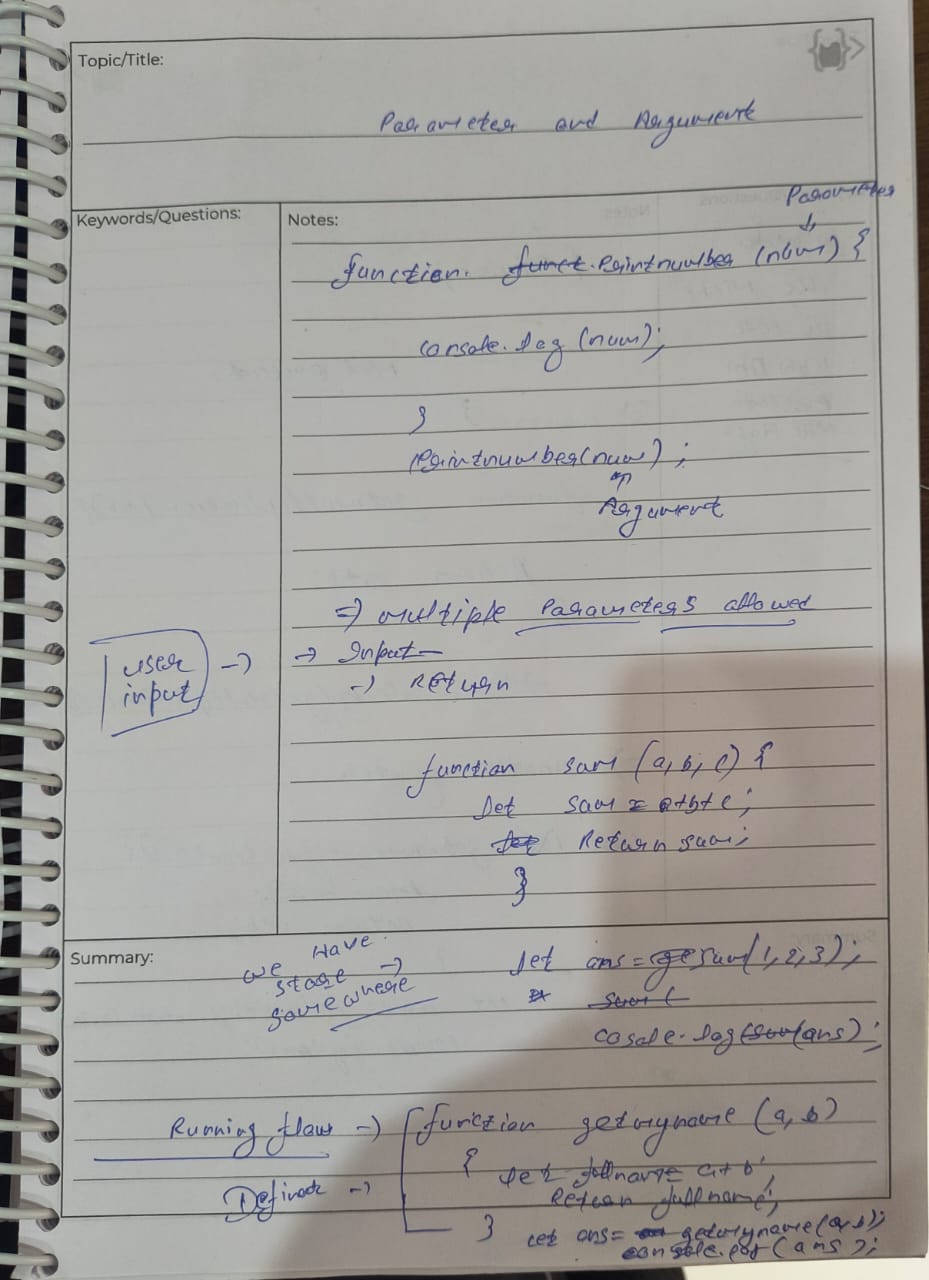 Topic/Title:
Parameter and Argument
Keywords/Questions:
Notes:
Parameter
↓
function. funct. Printnumber (num) {
console.log (num);
}
Printnumber(num) ;
Argument
⇒ multiple Parameters allowed
user input →
→ Input —
→ Return
function sum (a, b, c) {
Let sum = a+b+c;
Let Return sum;
}
Summary:
we Have
store →
somewhere
Let ans = ge sum(1,2,3);
sum (
cosole.log(sum(ans);
Running flow → function getmyname (a, b)
{ Let fullname = a+b;
Define →
Return fullname;
}
Let ans = getmyname(a,b);
console.log (ans);